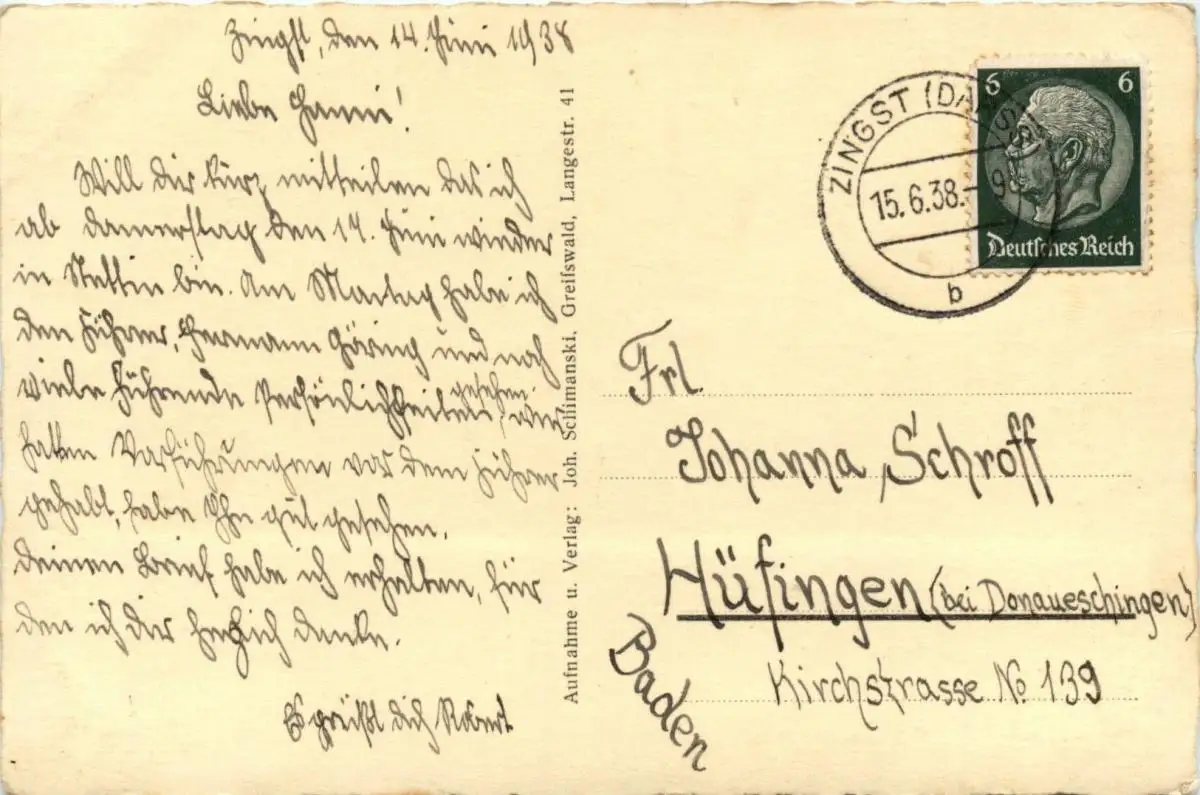 Zingst, den 14. Juni 1938
Liebe Hanni!
Will dir kurz mitteilen das ich
ab Donnerstag den 17. Juni wieder
in Stettin bin. Am Montag habe ich
den Führer, Hermann Göring und noch
viele führende Persönlichkeiten gesehen, wir
hatten Vorführungen vor dem Führer
gehabt, habe Ihn gut gesehen.
Deinen Brief habe ich erhalten, für
den ich dir herzlich danke.
Es grüßt dich Robert
Aufnahme u. Verlag: Joh. Schimanski, Greifswald, Langestr. 41
ZINGST (DARSS)
15.6.38.-9
b
6 6
Deutsches Reich
Frl.
Johanna Schroff
Hüfingen (bei Donaueschingen)
Baden
Kirchstrasse No 139